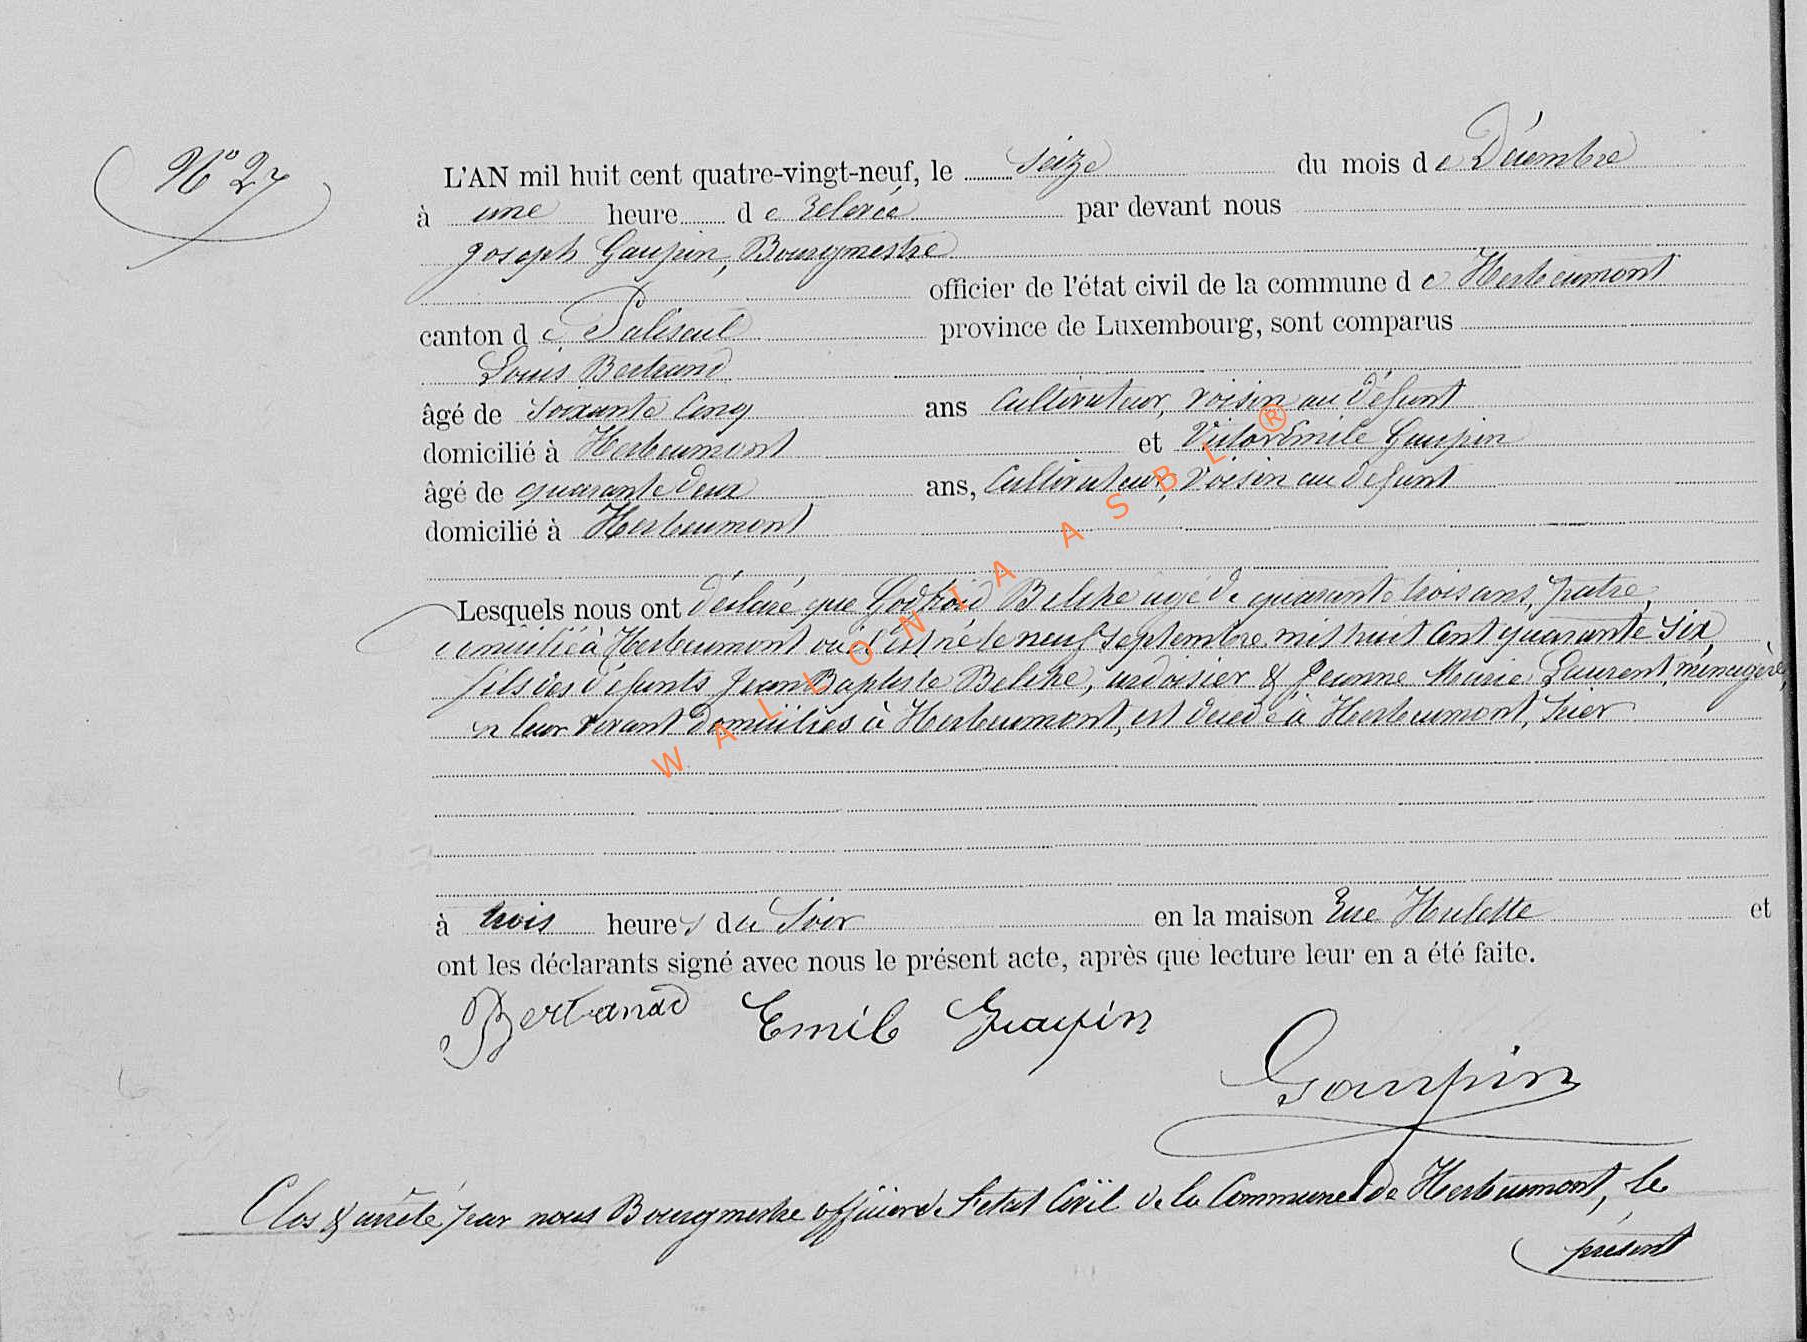 N° 27
L'AN mil huit cent quatre-vingt-neuf, le Seize du mois de Décembre
à une heure de relevée par devant nous
Joseph Gaupin, Bourgmestre
officier de l'état civil de la commune de Herbeumont
canton de Paliseul province de Luxembourg, sont comparus
Louis Bertrand
âgé de soixante Cinq ans Cultivateur, voisin au défunt
domicilié à Herbeumont et Victor Emile Gaupin
âgé de quarante deux ans, Cultivateur, voisin au défunt
domicilié à Herbeumont
Lesquels nous ont déclaré que Godfroid Belche agé de quarante trois ans, patre,
domicilié à Herbeumont où il est né le neuf Septembre mil huit Cent quarante six,
fils des défunts Jean Baptiste Belche, ardoisier & Jeanne Marie Laurent, ménagère,
en leur vivant domiciliés à Herbeumont, est décédé à Herbeumont, hier
à trois heures du Soir en la maison Rue Hulette et
ont les déclarants signé avec nous le présent acte, après que lecture leur en a été faite.
Bertrand Emile Gaupin
Gaupin
Clos & arrêté par nous Bourgmestre officier de l'état Civil de la Commune de Herbeumont, le
présent
WALLONIA ASBL ®